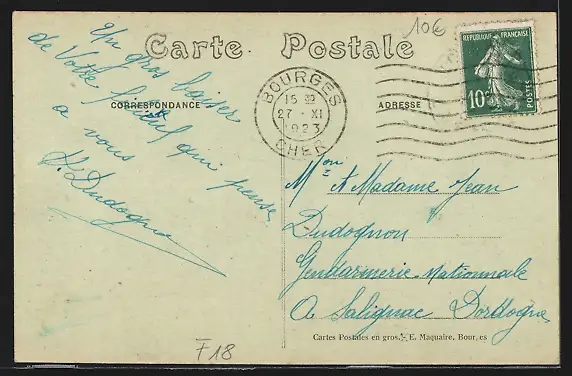 Carte Postale
10€
RÉPUBLIQUE FRANÇAISE
10c
POSTES
BOURGES
15 27 - XI
1923
CHER
CORRESPONDANCE
ADRESSE
Un gros baiser
de Votre qui pense
a vous
Dudognon
Mon et Madame Jean
Dudognon
Gendarmerie Nationnale
A Salignac Dordogne
Cartes Postales en gros, E. Maquaire, Bourges
F18